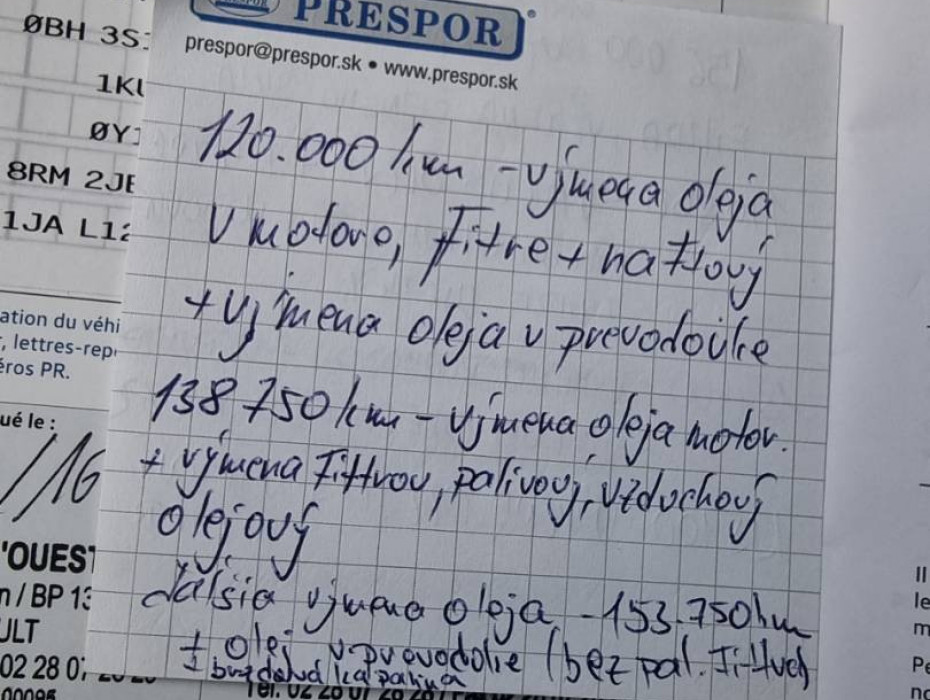 PRESPOR
prespor@prespor.sk • www.prespor.sk
120.000 km - výmena oleja
v motore, filtre + naftový
+ výmena oleja v prevodovke
138 750 km - výmena oleja motor.
+ výmena filtrov, palivový, vzduchový
olejový
ďalšia výmena oleja - 153.750 km
+ olej v prevodovke (bez pal. filtra)
+ brzdová kvapalina
ØBH 3S
1KU
ØY
8RM 2JE
1JA L12
ation du véhi
, lettres-rep
éros PR.
ué le :
/16
'OUEST
n / BP 13
ULT
02 28 0
00095
Tél. 02 28 01 28 28
Il
le
m
Pe